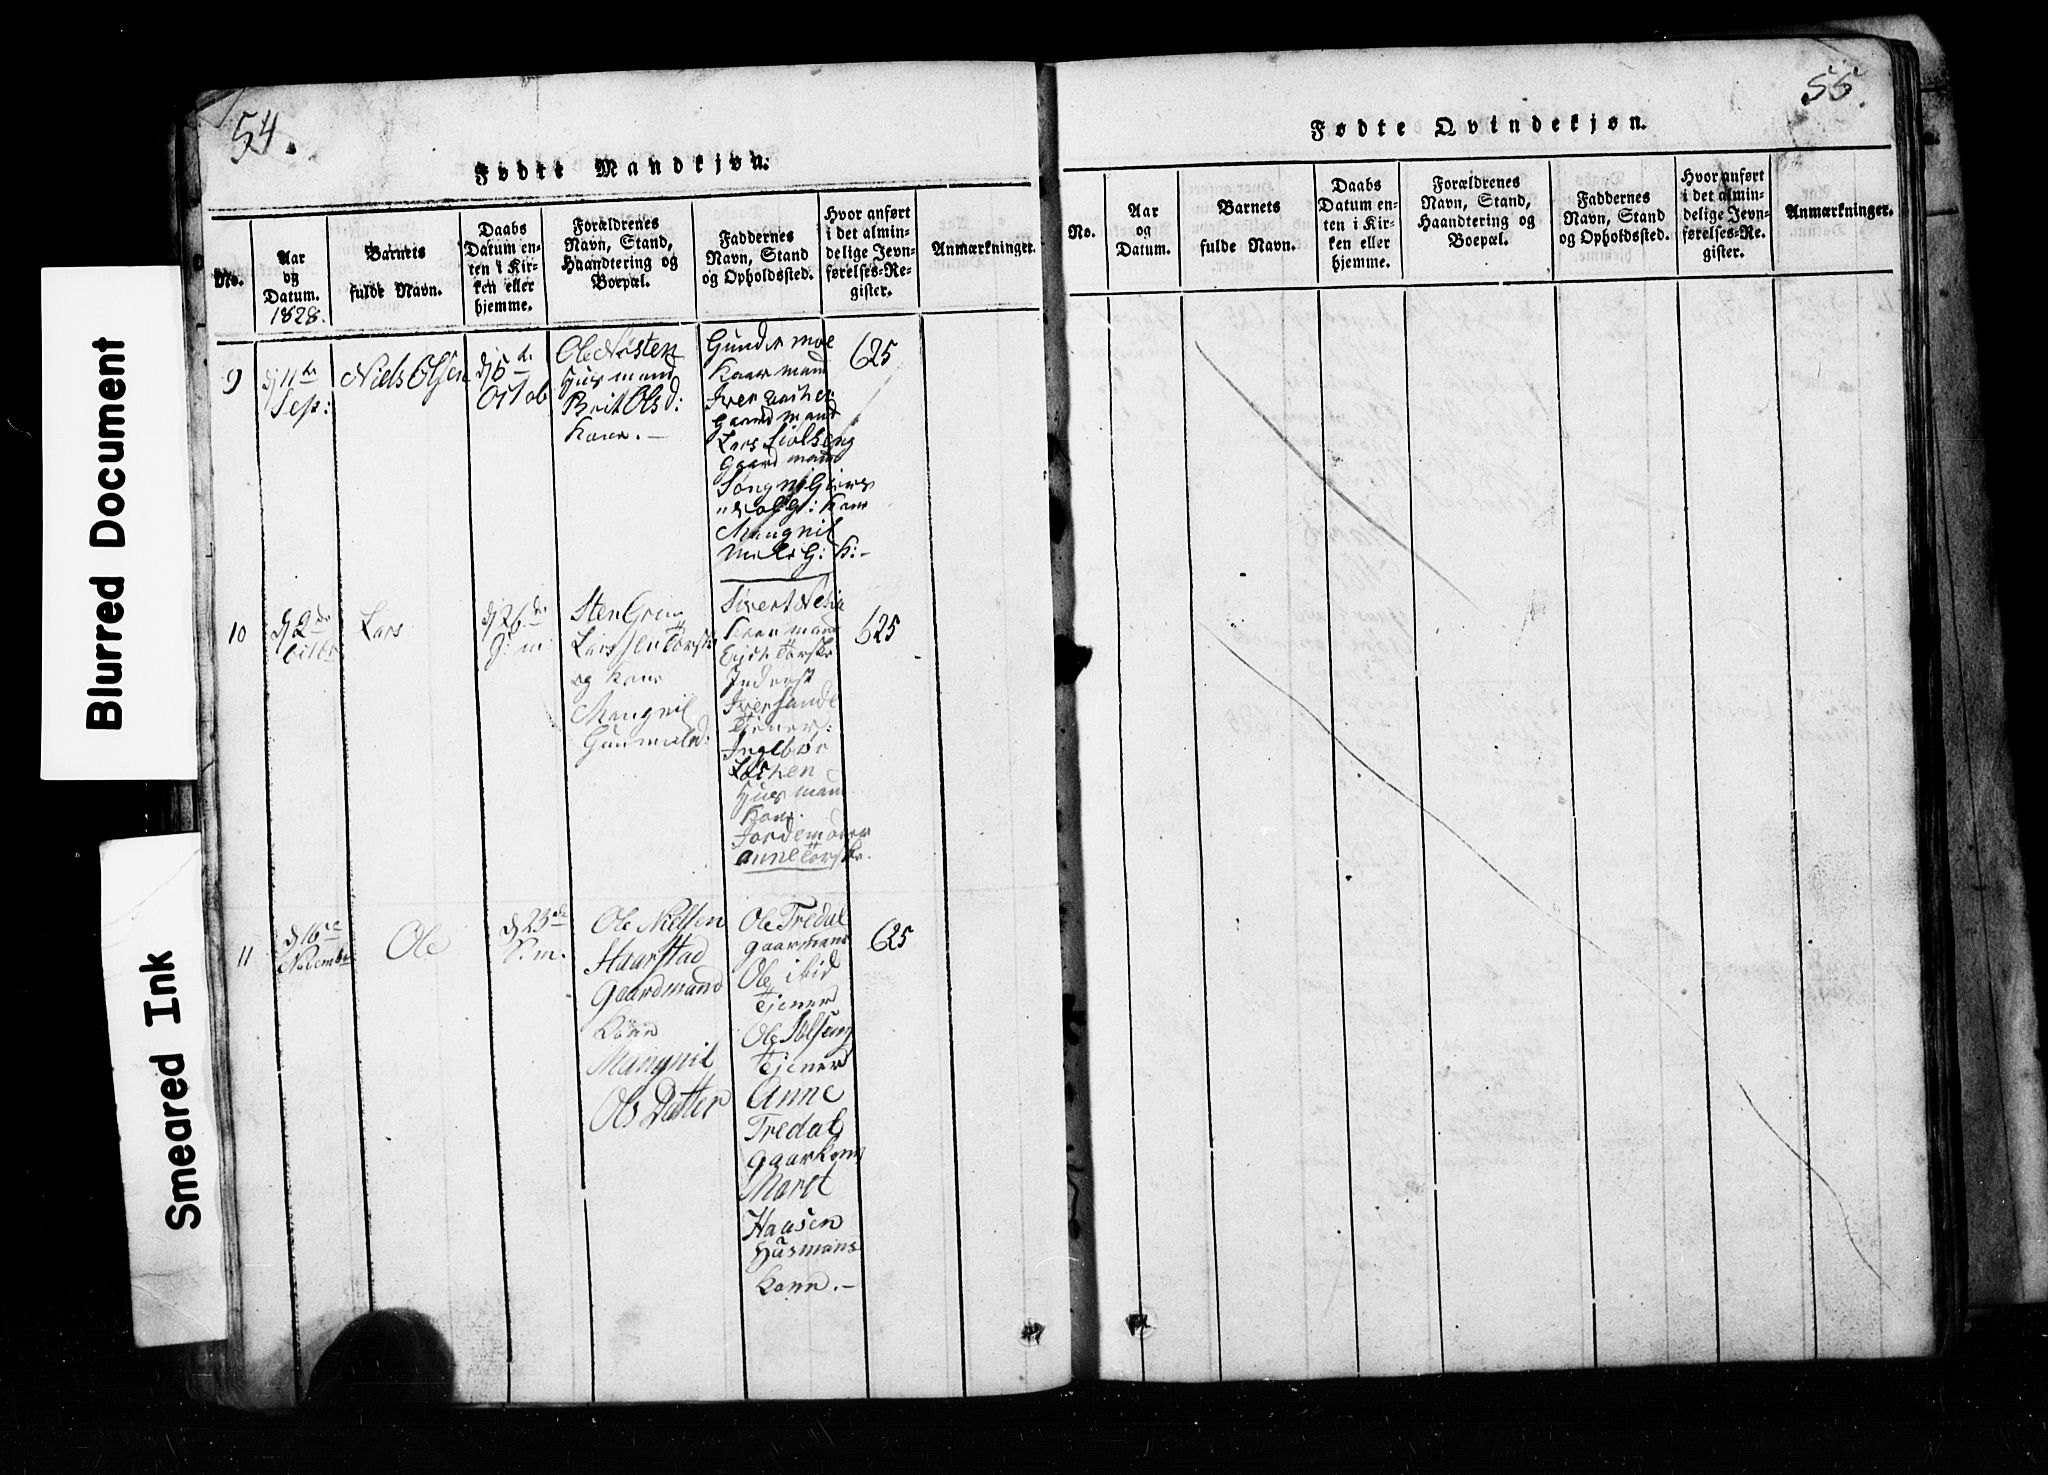 Blurred Document
Smeared Ink
54.
Fødte Mandkjøn.
No.
Aar
og
Datum.
1828.
Barnets
fulde Navn.
Daabs
Datum en-
ten i Kir-
ken eller
hjemme.
Forældrenes
Navn, Stand,
Haandtering og
Boepæl.
Faddernes
Navn, Stand
og Opholdssted.
Hvor anført
i det almin-
delige Jevn-
førelses-Re-
gister.
Anmærkninger.
9
Sep:
Niels Olsen
Octob
Ole
Husmand
Brit Olsd:
Kone. –
Gunder Moe
Kaarmand
Iver
Gaardmand
Lars
Gaardmand
G: Kone
Mangnil
G: K: –
625
10
d 2de
Octbr
Lars
d 26de
Sten
Larssen Torske
og Kone
Mangnil
Sivert
Kaarmand
Torske
Inderst
Iver
Tjener:
Ingebor
Husmand
Kone.
Jordemoder
Anne Torske.
625
11
d 16de
Novembr
Ole
d 23de
S. m.
Ole Nielsen
Haarstad
Gaardmand
Kone
Mangnil
Ols Datter
Ole Tredal
Gaarmand
Ole
Tjener
Ole Solseng
Tjener
Anne
Tredal
Gaarkone
Maret
Haasen
Husmans
Kone. –
625
55.
Fødte Qvindekjøn.
No.
Aar
og
Datum.
Barnets
fulde Navn.
Daabs
Datum en-
ten i Kir-
ken eller
hjemme.
Forældrenes
Navn, Stand,
Haandtering og
Boepæl.
Faddernes
Navn, Stand
og Opholdssted.
Hvor anført
i det almin-
delige Jevn-
førelses-Re-
gister.
Anmærkninger.